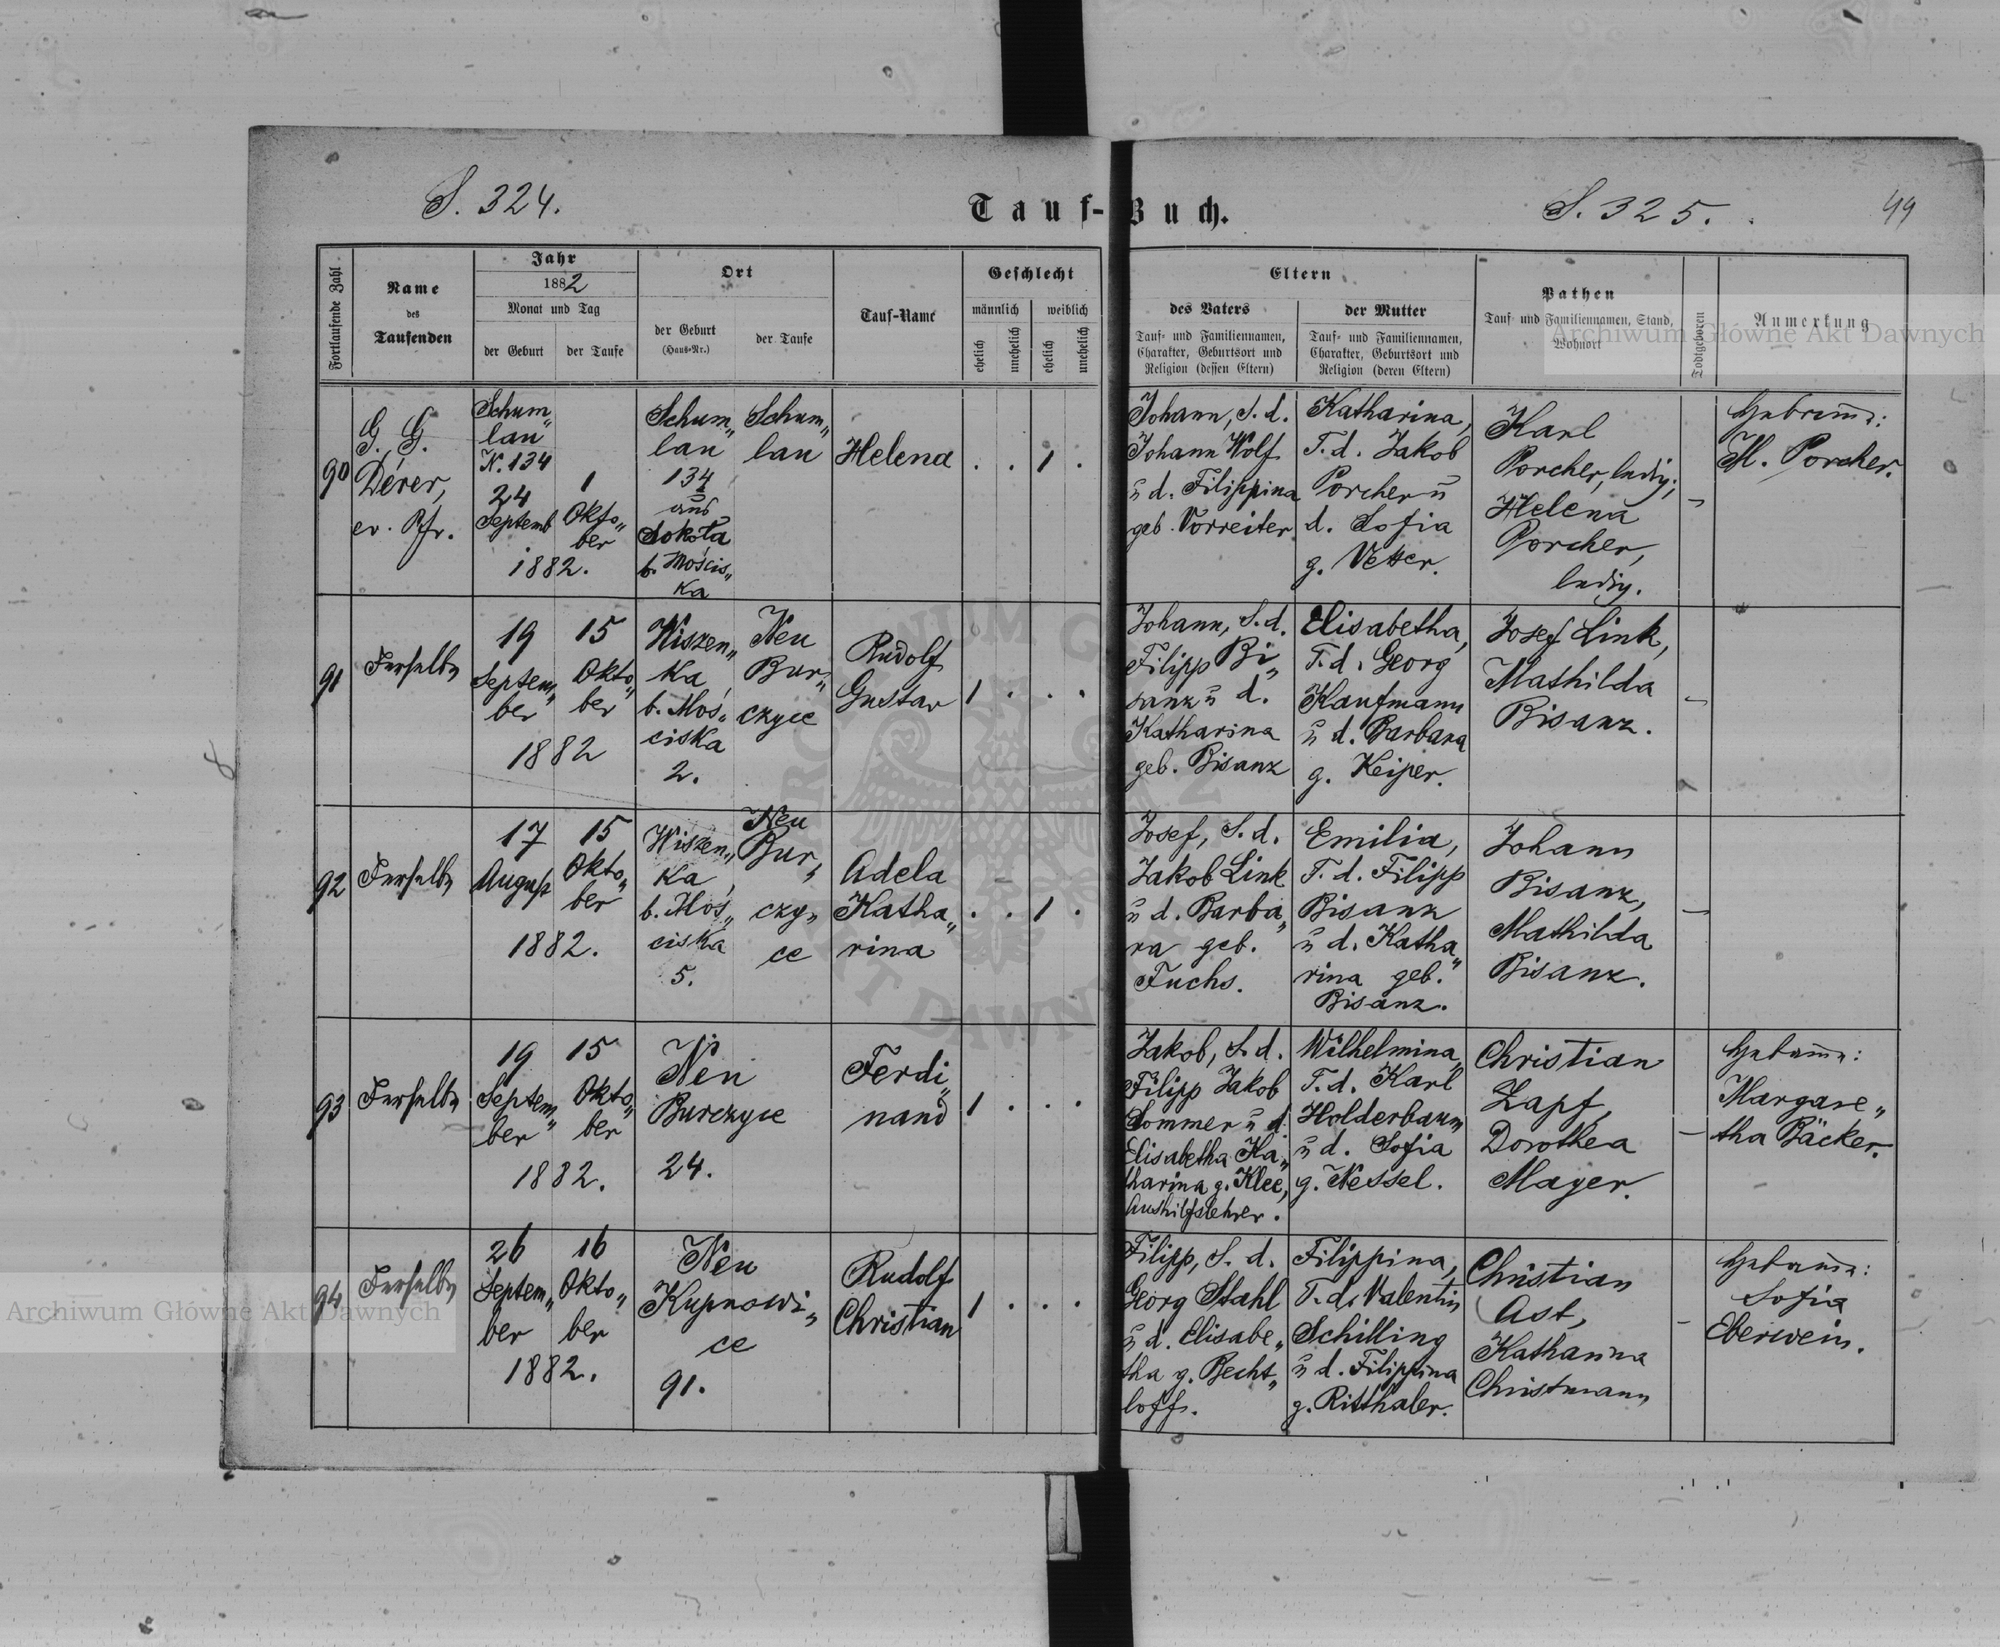 S. 324.
Tauf-Buch.
S. 325.
49
Fortlaufende Zahl
Name
des
Taufenden
Jahr
1882
Monat und Tag
der Geburt
der Taufe
Ort
der Geburt
(Haus-Nr.)
der Taufe
Tauf-Name
Geschlecht
männlich
weiblich
ehelich
unehelich
ehelich
unehelich
Eltern
des Vaters
Tauf- und Familiennamen,
Charakter, Geburtsort und
Religion (dessen Eltern)
der Mutter
Tauf- und Familiennamen,
Charakter, Geburtsort und
Religion (deren Eltern)
Pathen
Tauf- und Familiennamen, Stand,
Wohnort
Todtgeboren
Anmerkung
90
G. G.
Dérer,
ev. Pfr.
Schum„
lau
N. 134
24
Septemb
1
Okto„
ber
1882.
Schum„
lau
134
aus
Sokoła
b. Mościs„
ka
Schum„
lau
Helena
. . 1 .
Johann, S. d.
Johann Wolf
u d. Filippina
geb. Vorreiter
Katharina,
T. d. Jakob
Porcher u
d. Sofia
g. Vetter.
Karl
Porcher, ledig;
Helena
Porcher,
ledig.
–
Hebamme:
H. Porcher.
91
Derselbe
19
Septem„
ber
15
Okto„
ber
1882
Wiszen„
ka
b. Moś„
ciska
2.
Neu
Bur„
czyce
Rudolf
Gustav
1 . . .
Johann, S. d.
Filipp Bi„
sanz u d.
Katharina
geb. Bisanz
Elisabetha,
T. d. Georg
Kaufmann
u d. Barbara
g. Keiper.
Josef Link,
Mathilda
Bisanz.
–
92
Derselbe
17
August
15
Okto„
ber
1882.
Wiszen„
ka,
b. Moś„
ciska
5.
Neu
Bur„
czy„
ce
Adela
Katha„
rina
. . 1 .
Josef, S. d.
Jakob Link
u d. Barba„
ra geb.
Fuchs.
Emilia,
T. d. Filipp
Bisanz
u d. Katha„
rina geb.
Bisanz.
Johann
Bisanz,
Mathilda
Bisanz.
–
93
Derselbe
19
Septem„
ber
15
Okto„
ber
1882.
Neu
Burczyce
24.
Ferdi„
nand
1 . . .
Jakob, S. d.
Filipp Jakob
Sommer u d.
Elisabetha Ka„
tharina g. Klee,
Aushilfslehrer.
Wilhelmina,
T. d. Karl
Holderbaum
u d. Sofia
g. Nessel.
Christian
Zapf,
Dorothea
Mayer.
–
Hebamme:
Margare„
tha Bäcker.
94
Derselbe
26
Septem„
ber
16
Okto„
ber
1882.
Neu
Kupnowi„
ce
91.
Rudolf
Christian
1 . . .
Filipp, S. d.
Georg Stahl
u d. Elisabe„
tha g. Becht„
loff.
Filippina,
T. d. Valentin
Schilling
u d. Filippina
g. Ritthaler.
Christian
Ast,
Katharina
Christmann
–
Hebamme:
Sofia
Eberwein.
Archiwum Główne Akt Dawnych
Archiwum Główne Akt Dawnych